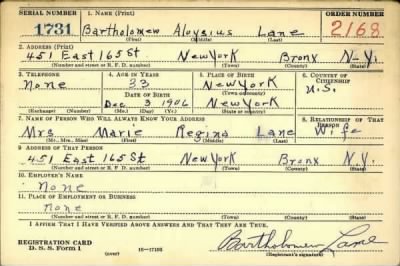 SERIAL NUMBER 1. NAME (Print) ORDER NUMBER
1731 Bartholomew Aloysius Lane 2168
(First) (Middle) (Last)
2. ADDRESS (Print)
451 East 165 St New York Bronx N.Y.
(Number and street or R. F. D. number) (Town) (County) (State)
3. TELEPHONE 4. AGE IN YEARS 5. PLACE OF BIRTH 6. COUNTRY OF CITIZENSHIP
None 33 New York U.S.
DATE OF BIRTH (Town or county)
Dec 3 1906 New York
(Exchange) (Number) (Mo.) (Day) (Yr.) (State or country)
7. NAME OF PERSON WHO WILL ALWAYS KNOW YOUR ADDRESS 8. RELATIONSHIP OF THAT PERSON
Mrs Marie Regina Lane Wife
(Mr., Mrs., Miss) (First) (Middle) (Last)
9. ADDRESS OF THAT PERSON
451 East 165 St New York Bronx N.Y.
(Number and street or R. F. D. number) (Town) (County) (State)
10. EMPLOYER'S NAME
None
11. PLACE OF EMPLOYMENT OR BUSINESS
None
(Number and street or R. F. D. number) (Town) (County) (State)
I AFFIRM THAT I HAVE VERIFIED ABOVE ANSWERS AND THAT THEY ARE TRUE.
REGISTRATION CARD
D. S. S. Form 1 (over) 16—17105 Bartholomew Lane
(Registrant's signature)